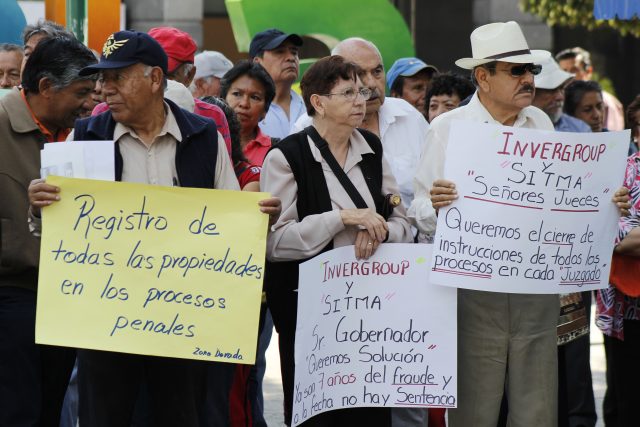 Registro de
todas las propiedades
en los procesos
penales
Zona Dorada
INVERGROUP
Y
"SITMA"
Sr. Gobernador
"Queremos Solución"
Ya son 7 años del fraude y
a la fecha no hay Sentencia
INVERGROUP
Y
"SITMA"
"Señores Jueces"
Queremos el cierre de
instrucciones de todos los
procesos en cada "Juzgado"